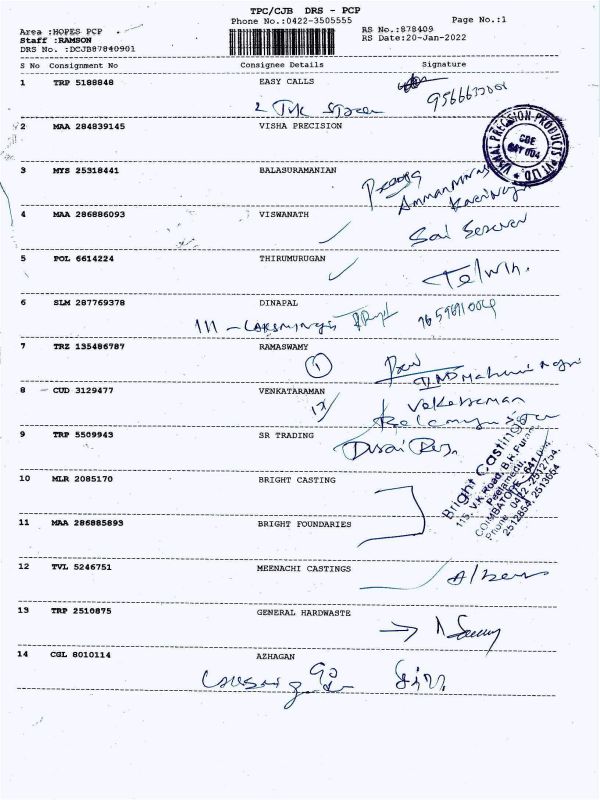 TPC/CJB DRS - PCP
Phone No.:0422-3505555
Page No.:1
Area :HOPES PCP
Staff :RAMSON
DRS No. :DCJB87840901
RS No.:878409
RS Date:20-Jan-2022
S No Consignment No Consignee Details Signature
1 TRP 5188848 EASY CALLS
2 MAA 284839145 VISHA PRECISION
VISHAL PRECISION PRODUCTS PVT LTD
CBE
3 MYS 25318441 BALASURAMANIAN
4 MAA 286886093 VISWANATH
Sai
5 POL 6614224 THIRUMURUGAN
Telwin.
6 SLM 287769378 DINAPAL
111 -
7 TRZ 135486787 RAMASWAMY
1
8 CUD 3129477 VENKATARAMAN
9 TRP 5509943 SR TRADING
Durai
10 MLR 2085170 BRIGHT CASTING
Bright Castings
115, V.K. Road, B.K. Puram,
Peelamedu,
COIMBATORE - 641 004.
Phone : 0422-2512754,
2512854, 2513654
11 MAA 286885893 BRIGHT FOUNDARIES
12 TVL 5246751 MEENACHI CASTINGS
13 TRP 2510875 GENERAL HARDWASTE
14 CGL 8010114 AZHAGAN